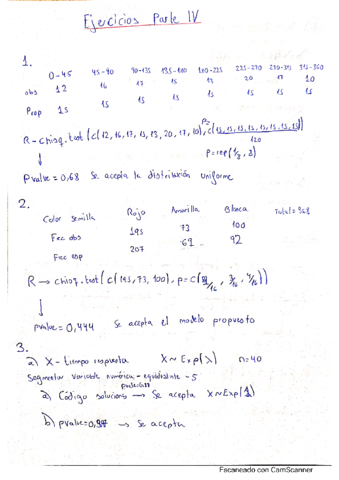 Ejercicios Parte IV
1.
0-45 45-90 90-135 135-180 180-225 225-270 270-315 315-360
obs 12 16 17 15 13 20 17 10
Prop 15 15 15 15 15 15 15 15
R - chisq.test (c(12,16,17,15,13,20,17,10), c(15,15,15,15,15,15,15,15)
p=
120
p=rep(1/8,8)
pvalue = 0,68 Se acepta la distribución uniforme
2.
Color semilla Rojo Amarilla Blanca Total=368
Frec obs 195 73 100
Frec esp 207 69 92
R → chisq.test (c(195,73,100), p=c(9/16, 3/16, 4/16))
pvalue = 0,444 Se acepta el modelo propuesto
3.
a) X - tiempo respuesta X~Exp(λ) n=40
Segmentar variable numérica - equidistante - 5
a) Código solucions → Se acepta X~Exp(1)
b) pvalue=0,97 → Se acepta
Escaneado con CamScanner